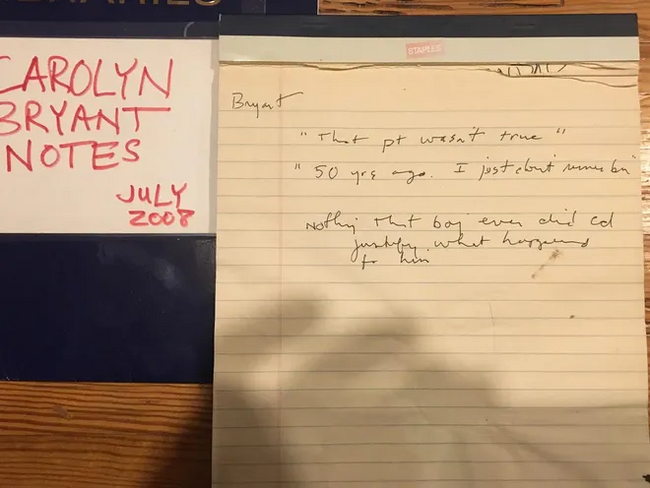 BRARIES
CAROLYN
BRYANT
NOTES
JULY
2008
STAPLES
Bryant
"That pt wasn't true"
"50 yrs ago. I just don't remember"
Nothing that boy ever did cd
justify what happened
to him